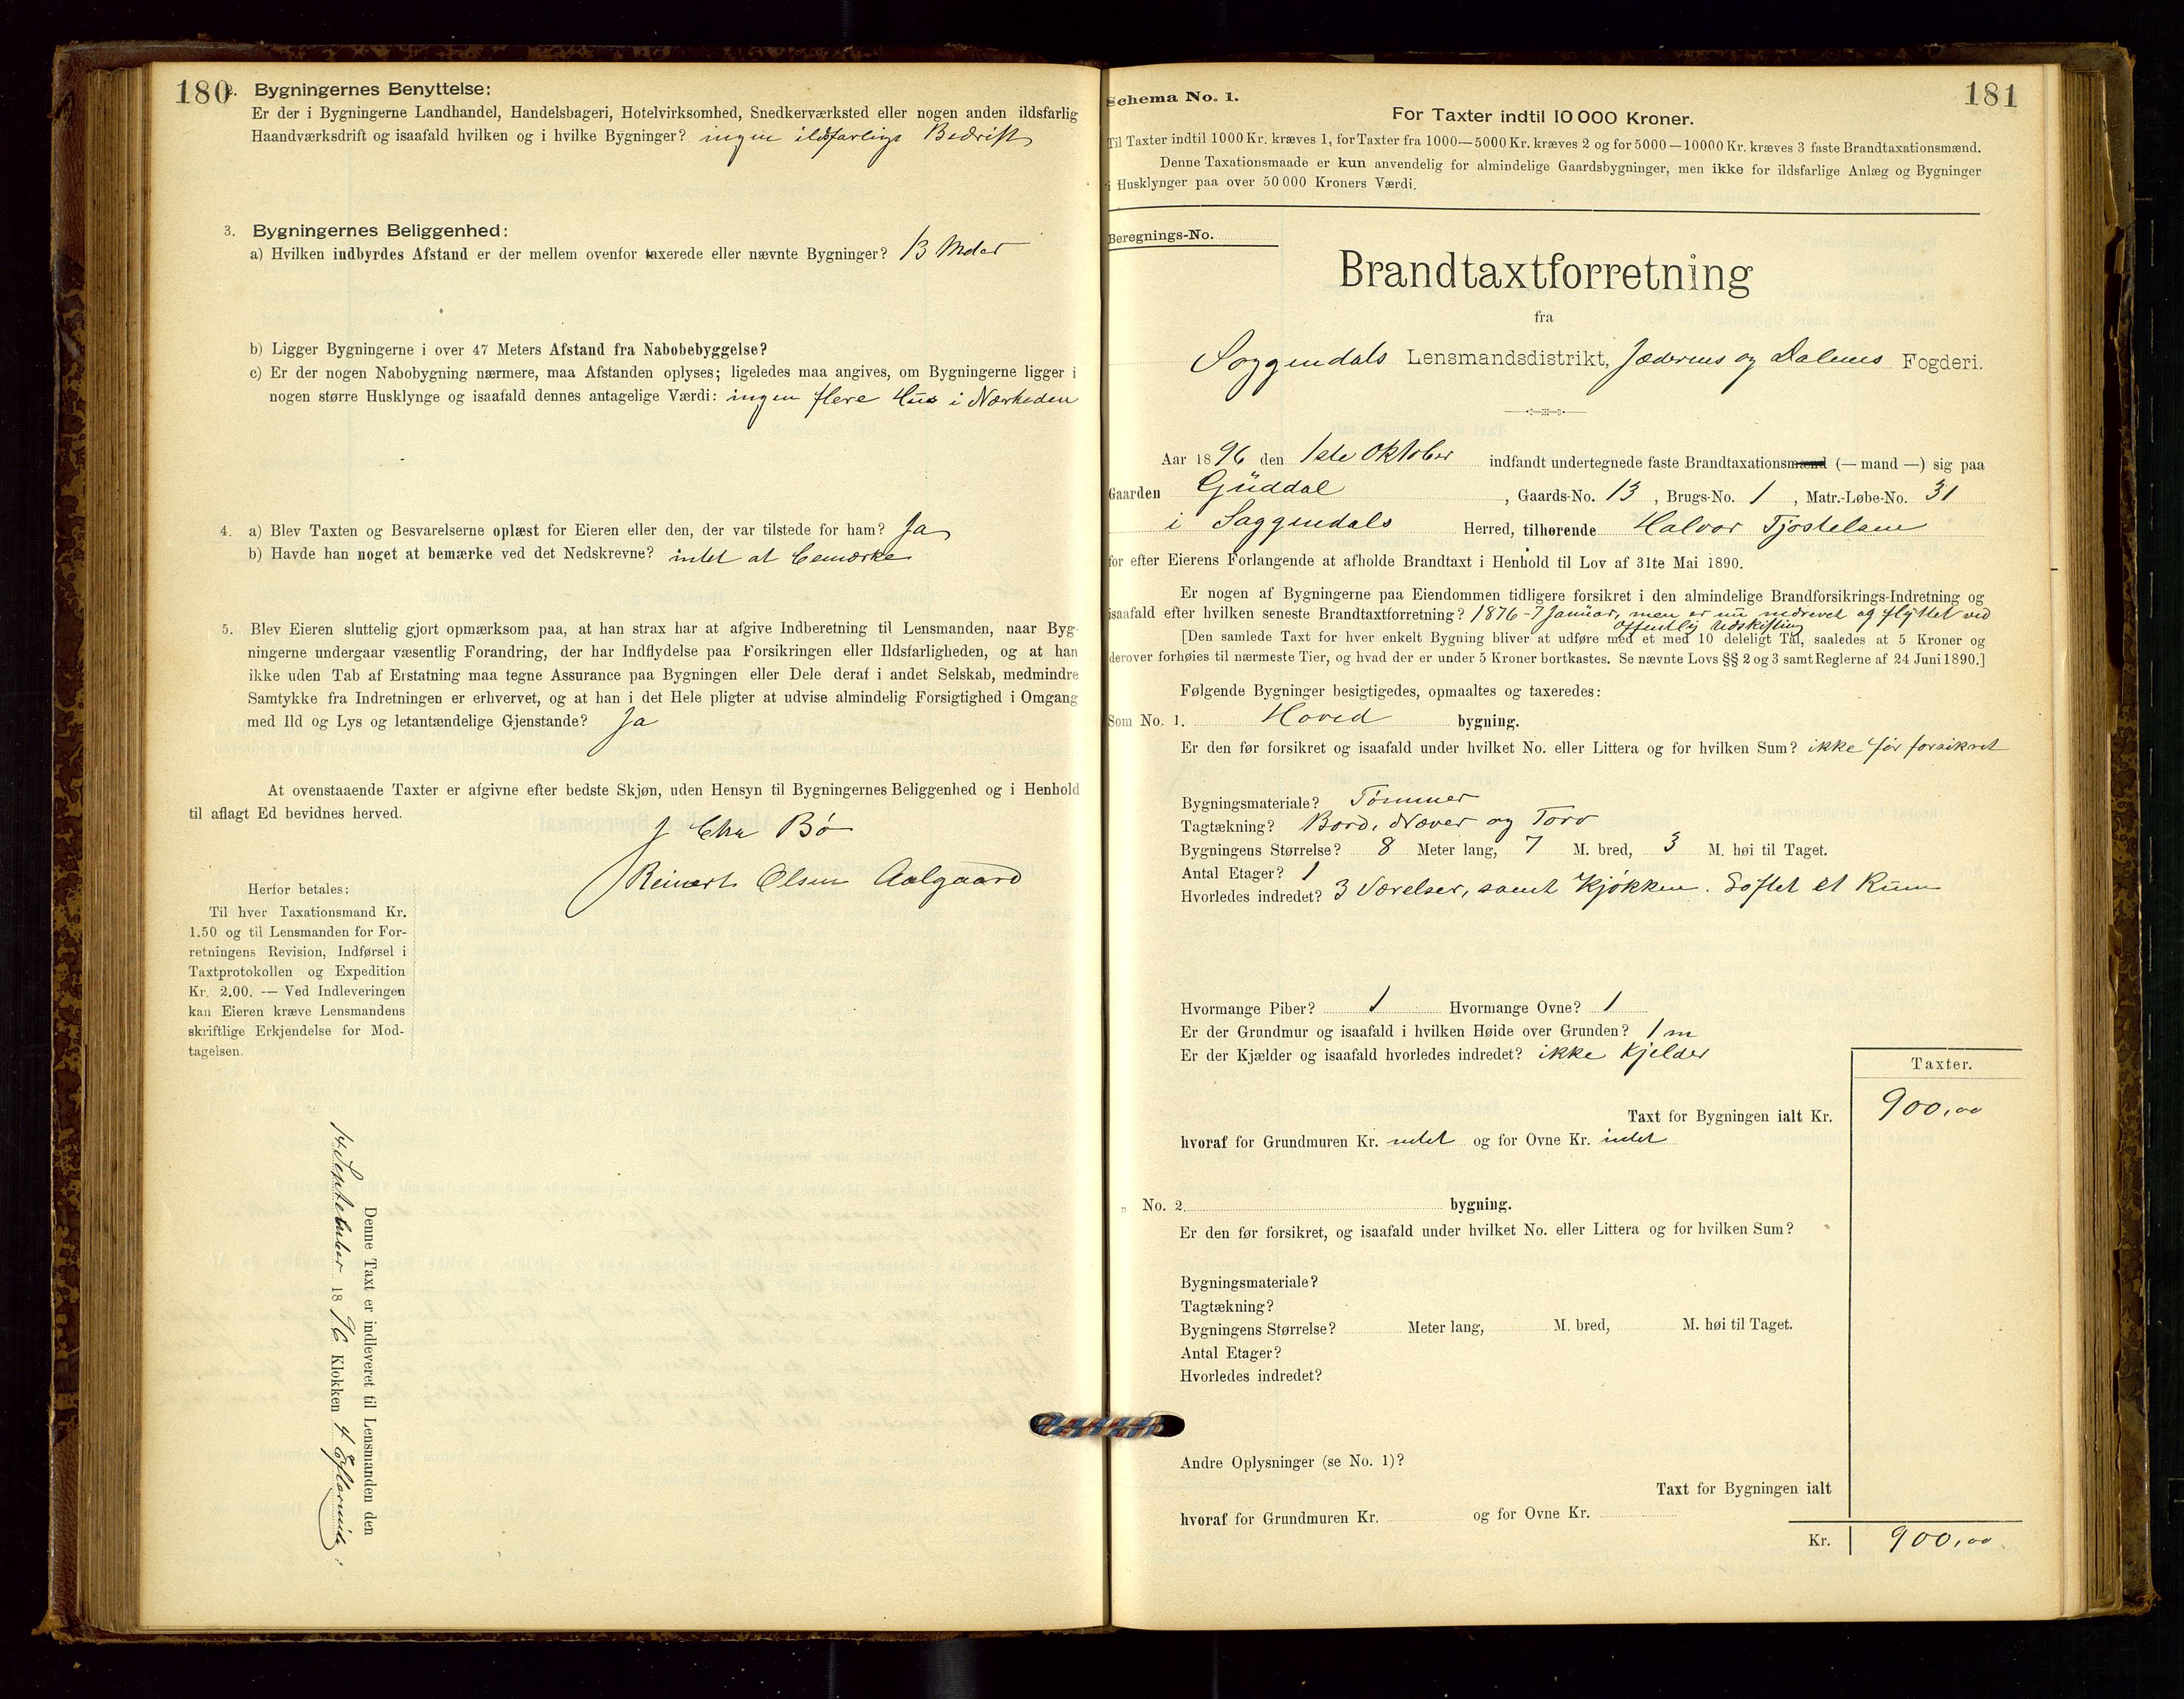 180
2. Bygningernes Benyttelse:
Er der i Bygningerne Landhandel, Handelsbageri, Hotelvirksomhed, Snedkerværksted eller nogen anden ildsfarlig
Haandværksdrift og isaafald hvilken og i hvilke Bygninger? ingen ildsfarlige Bedrift
3. Bygningernes Beliggenhed:
a) Hvilken indbyrdes Afstand er der mellem ovenfor taxerede eller nævnte Bygninger? 13 Meter
b) Ligger Bygningerne i over 47 Meters Afstand fra Nabobebyggelse?
c) Er der nogen Nabobygning nærmere, maa Afstanden oplyses; ligeledes maa angives, om Bygningerne ligger i
nogen større Husklynge og isaafald dennes antagelige Værdi: ingen flere Hus i Nærheden
4. a) Blev Taxten og Besvarelserne oplæst for Eieren eller den, der var tilstede for ham? Ja
b) Havde han noget at bemærke ved det Nedskrevne? intet at bemærke
5. Blev Eieren sluttelig gjort opmærksom paa, at han strax har at afgive Indberetning til Lensmanden, naar Byg-
ningerne undergaar væsentlig Forandring, der har Indflydelse paa Forsikringen eller Ildsfarligheden, og at han
ikke uden Tab af Erstatning maa tegne Assurance paa Bygningen eller Dele deraf i andet Selskab, medmindre
Samtykke fra Indretningen er erhvervet, og at han i det Hele pligter at udvise almindelig Forsigtighed i Omgang
med Ild og Lys og letantændelige Gjenstande? Ja
At ovenstaaende Taxter er afgivne efter bedste Skjøn, uden Hensyn til Bygningernes Beliggenhed og i Henhold
til aflagt Ed bevidnes herved.
J Chr Bö
Reinert Olsen Aalgaard
Herfor betales:
Til hver Taxationsmand Kr.
1.50 og til Lensmanden for For-
retningens Revision, Indførsel i
Taxtprotokollen og Expedition
Kr. 2.00. — Ved Indleveringen
kan Eieren kræve Lensmandens
skriftlige Erkjendelse for Mod-
tagelsen.
Denne Taxt er indleveret til Lensmanden den
14 September 1896 Klokken 4 Eftermidg.
Schema No. 1.
181
For Taxter indtil 10 000 Kroner.
Til Taxter indtil 1000 Kr. kræves 1, for Taxter fra 1000—5000 Kr. kræves 2 og for 5000—10000 Kr. kræves 3 faste Brandtaxationsmænd.
Denne Taxationsmaade er kun anvendelig for almindelige Gaardsbygninger, men ikke for ildsfarlige Anlæg og Bygninger
i Husklynger paa over 50 000 Kroners Værdi.
Beregnings-No.
Brandtaxtforretning
fra
Soggendals Lensmandsdistrikt, Jæderens og Dalenes Fogderi.
Aar 1896 den 1ste Oktober indfandt undertegnede faste Brandtaxationsmænd (— mand —) sig paa
Gaarden Güddal, Gaards-No. 13, Brugs-No. 1, Matr.-Løbe-No. 31
i Soggendals Herred, tilhørende Halvor Tjostelsen
for efter Eierens Forlangende at afholde Brandtaxt i Henhold til Lov af 31te Mai 1890.
Er nogen af Bygningerne paa Eiendommen tidligere forsikret i den almindelige Brandforsikrings-Indretning og
isaafald efter hvilken seneste Brandtaxtforretning? 1876 - 7 Januar, men er nu nedrevet og flyttet ved
offentlig Udskifting
[Den samlede Taxt for hver enkelt Bygning bliver at udføre med et med 10 deleligt Tal, saaledes at 5 Kroner og
derover forhøies til nærmeste Tier, og hvad der er under 5 Kroner bortkastes. Se nævnte Lovs §§ 2 og 3 samt Reglerne af 24 Juni 1890.]
Følgende Bygninger besigtigedes, opmaaltes og taxeredes:
Som No. 1. Hoved bygning.
Er den før forsikret og isaafald under hvilket No. eller Littera og for hvilken Sum? ikke før forsikret
Bygningsmateriale? Tømmer
Tagtækning? Bord, Næver og Torv
Bygningens Størrelse? 8 Meter lang, 7 M. bred, 3 M. høi til Taget.
Antal Etager? 1
Hvorledes indredet? 3 Værelser, samt Kjøkken. Loftet et Rum
Hvormange Piber? 1 Hvormange Ovne? 1
Er der Grundmur og isaafald i hvilken Høide over Grunden? 1 m
Er der Kjælder og isaafald hvorledes indredet? ikke Kjelder
Taxter.
Taxt for Bygningen ialt Kr. 900,00
hvoraf for Grundmuren Kr. intet og for Ovne Kr. intet
„ No. 2. bygning.
Er den før forsikret, og isaafald under hvilket No. eller Littera og for hvilken Sum?
Bygningsmateriale?
Tagtækning?
Bygningens Størrelse? Meter lang, M. bred, M. høi til Taget.
Antal Etager?
Hvorledes indredet?
Andre Oplysninger (se No. 1)?
Taxt for Bygningen ialt
hvoraf for Grundmuren Kr. og for Ovne Kr.
Kr. 900,00